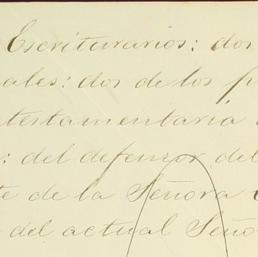 Escriturarios; dos
ales: dos de los p
testamentaria
: del defensor del
te de la Señora
del actual Seño